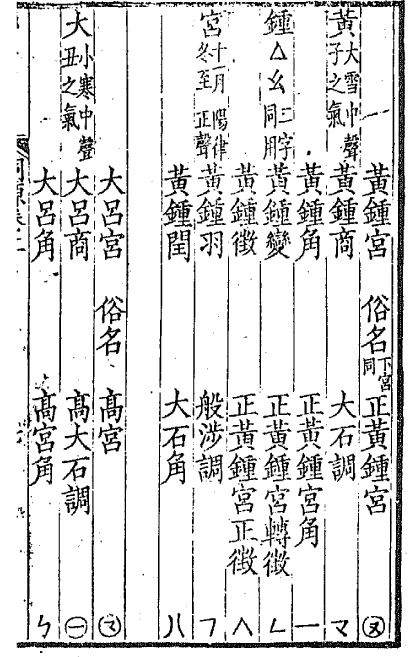 黃 大雪中聲 子之氣
鍾 △幺 二字同用
宮 十一月 冬至 陽律 正聲
黃鍾宮 俗名 下宮同 正黃鍾宮
黃鍾商 大石調 マ
黃鍾角 正黃鍾宮角 一
黃鍾變 正黃鍾宮轉徵 ㄴ
黃鍾徵 正黃鍾宮正徵 人
黃鍾羽 般涉調 フ
黃鍾閏 大石角 八
大 小寒中聲 丑之氣
大呂宮 俗名 髙宮 ㋮
大呂商 髙大石調 ㊀
大呂角 髙宮角 ㄣ